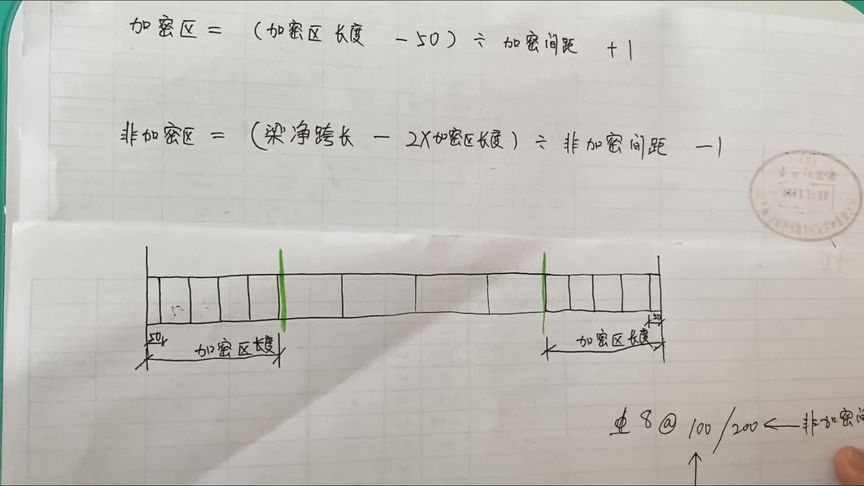 加密区 = (加密区长度 - 50) ÷ 加密间距 + 1
非加密区 = (梁净跨长 - 2X加密区长度) ÷ 非加密间距 - 1
50
加密区长度
加密区长度
50
8@100/200 ← 非加密间